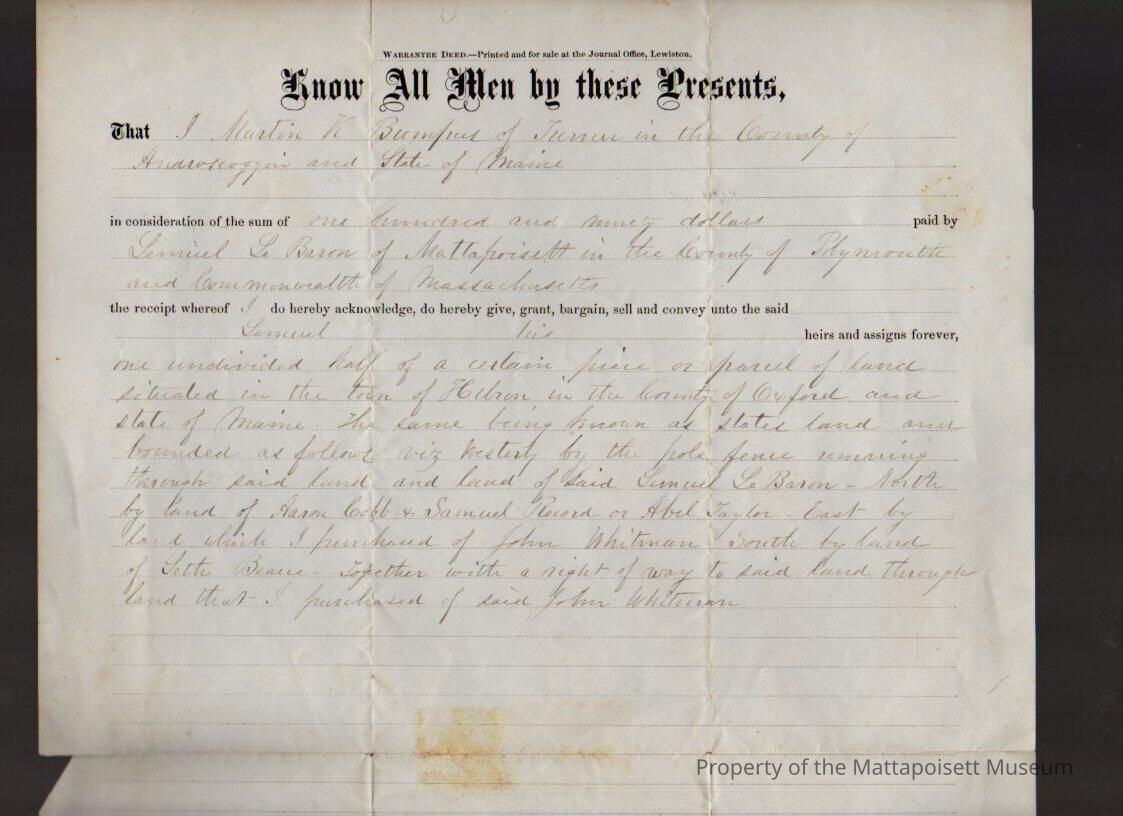 WARRANTEE DEED.—Printed and for sale at the Journal Office, Lewiston.
Know All Men by these Presents,
That I Martin K Bumpus of Turner in the County of
Androscoggin and State of Maine
in consideration of the sum of one hundred and ninety dollars paid by
Lemuel Le Baron of Mattapoisett in the County of Plymouth
and Commonwealth of Massachusetts
the receipt whereof I do hereby acknowledge, do hereby give, grant, bargain, sell and convey unto the said
Lemuel his heirs and assigns forever,
one undivided half of a certain piece or parcel of land
situated in the town of Hebron in the County of Oxford and
state of Maine. The same being known as states land and
bounded as follows viz Westerly by the pole fence running
through said land and land of said Lemuel Le Baron - North
by land of Aaron Cobb & Samuel Record or Abel Taylor - East by
land which I purchased of John Whitman South by land
of Seth Bearce - Together with a right of way to said land through
land that I purchased of said John Whitman.
Property of the Mattapoisett Museum